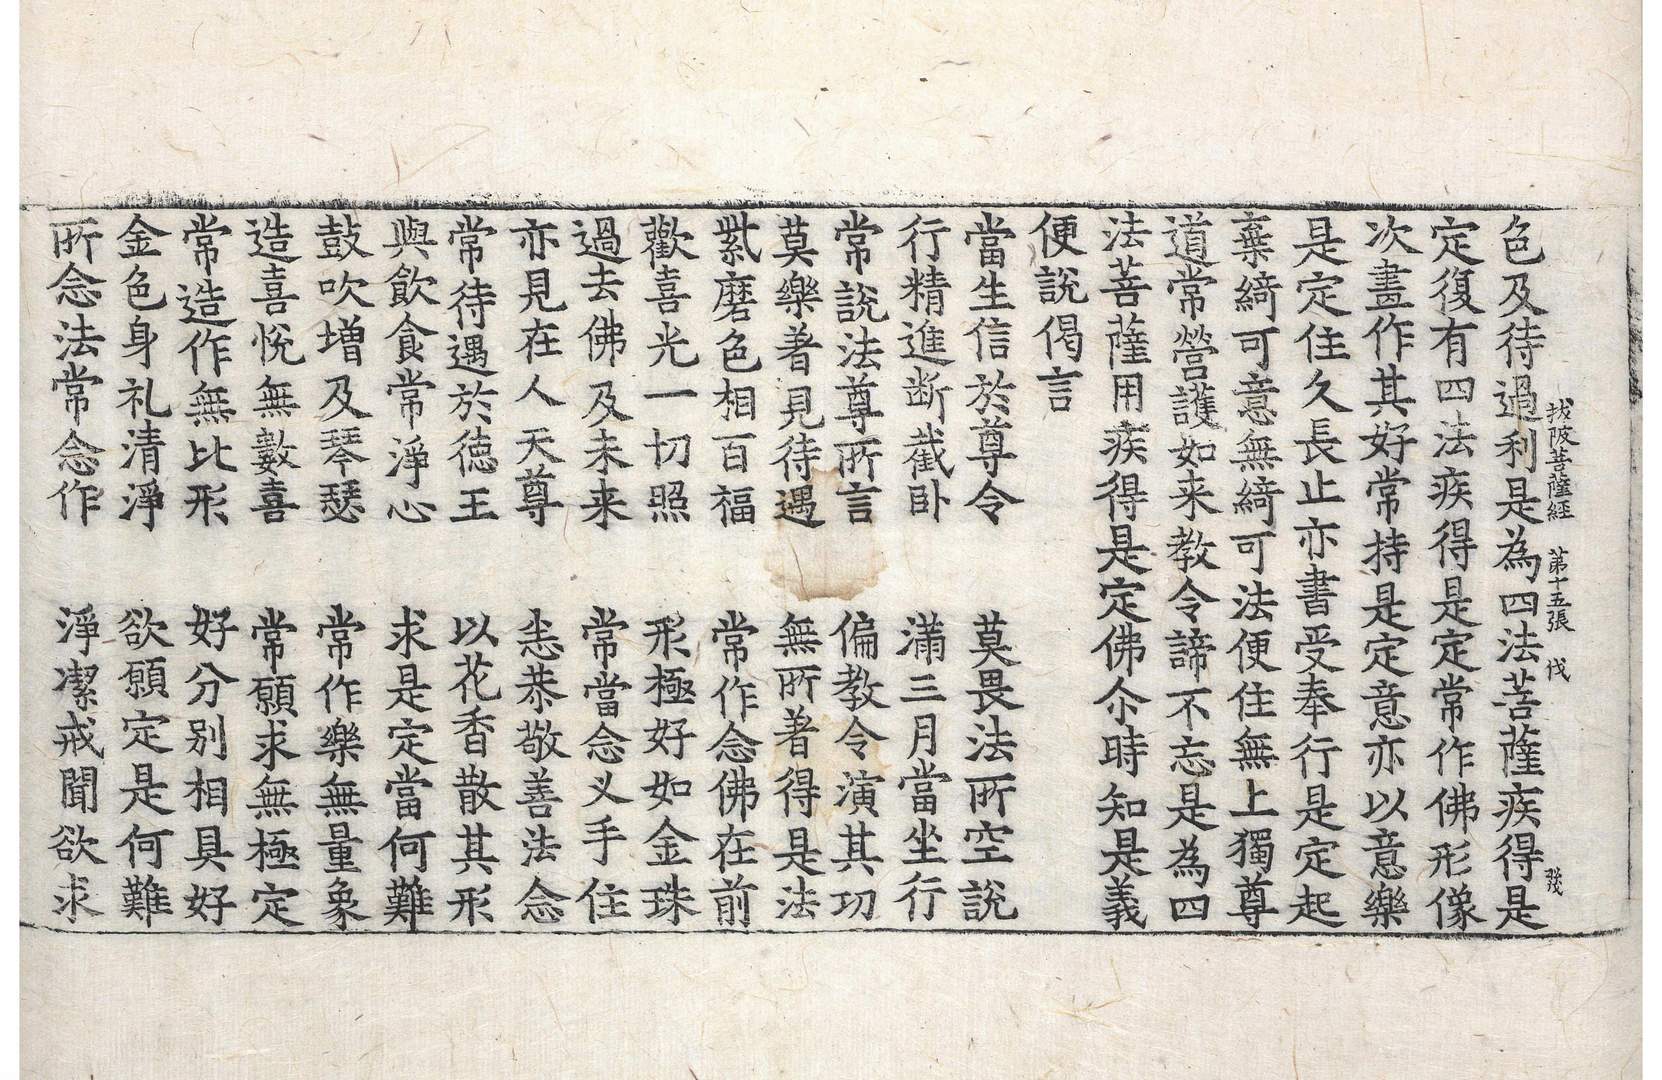 拔陂菩薩經 第十五張 伐
色及待過利是為四法菩薩疾得是
定復有四法疾得是定常作佛形像
次畫作其好常持是定意亦以意樂
是定住久長止亦書受奉行是定起
棄綺可意無綺可法便住無上獨尊
道常營護如来教令諦不忘是為四
法菩薩用疾得是定佛尒時知是義
便說偈言
當生信於尊令 莫畏法所空說
行精進断截卧 滿三月當坐行
常說法尊所言 偏教令演其功
莫樂著見待遇 無所著得是法
紫磨色相百福 常作念佛在前
歡喜光一切照 形極好如金珠
過去佛及未来 常當念义手住
亦見在人天尊 恙恭敬善法念
常待遇於德王 以花香散其形
與飲食常淨心 求是定當何難
鼓吹增及琴瑟 常作樂無量象
造喜悅無數喜 常願求無極定
常造作無比形 好分別相具好
金色身礼清淨 欲願定是何難
所念法常念作 淨潔戒聞欲求